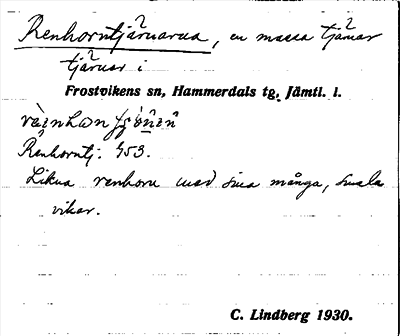 Renhorntjärnarna, en massa tjärnar
tjärnar i
Frostvikens sn, Hammerdals tg. Jämtl. l.
Renhorntj. 453.
Likna renhorn med sina många, smala
vikar.
C. Lindberg 1930.